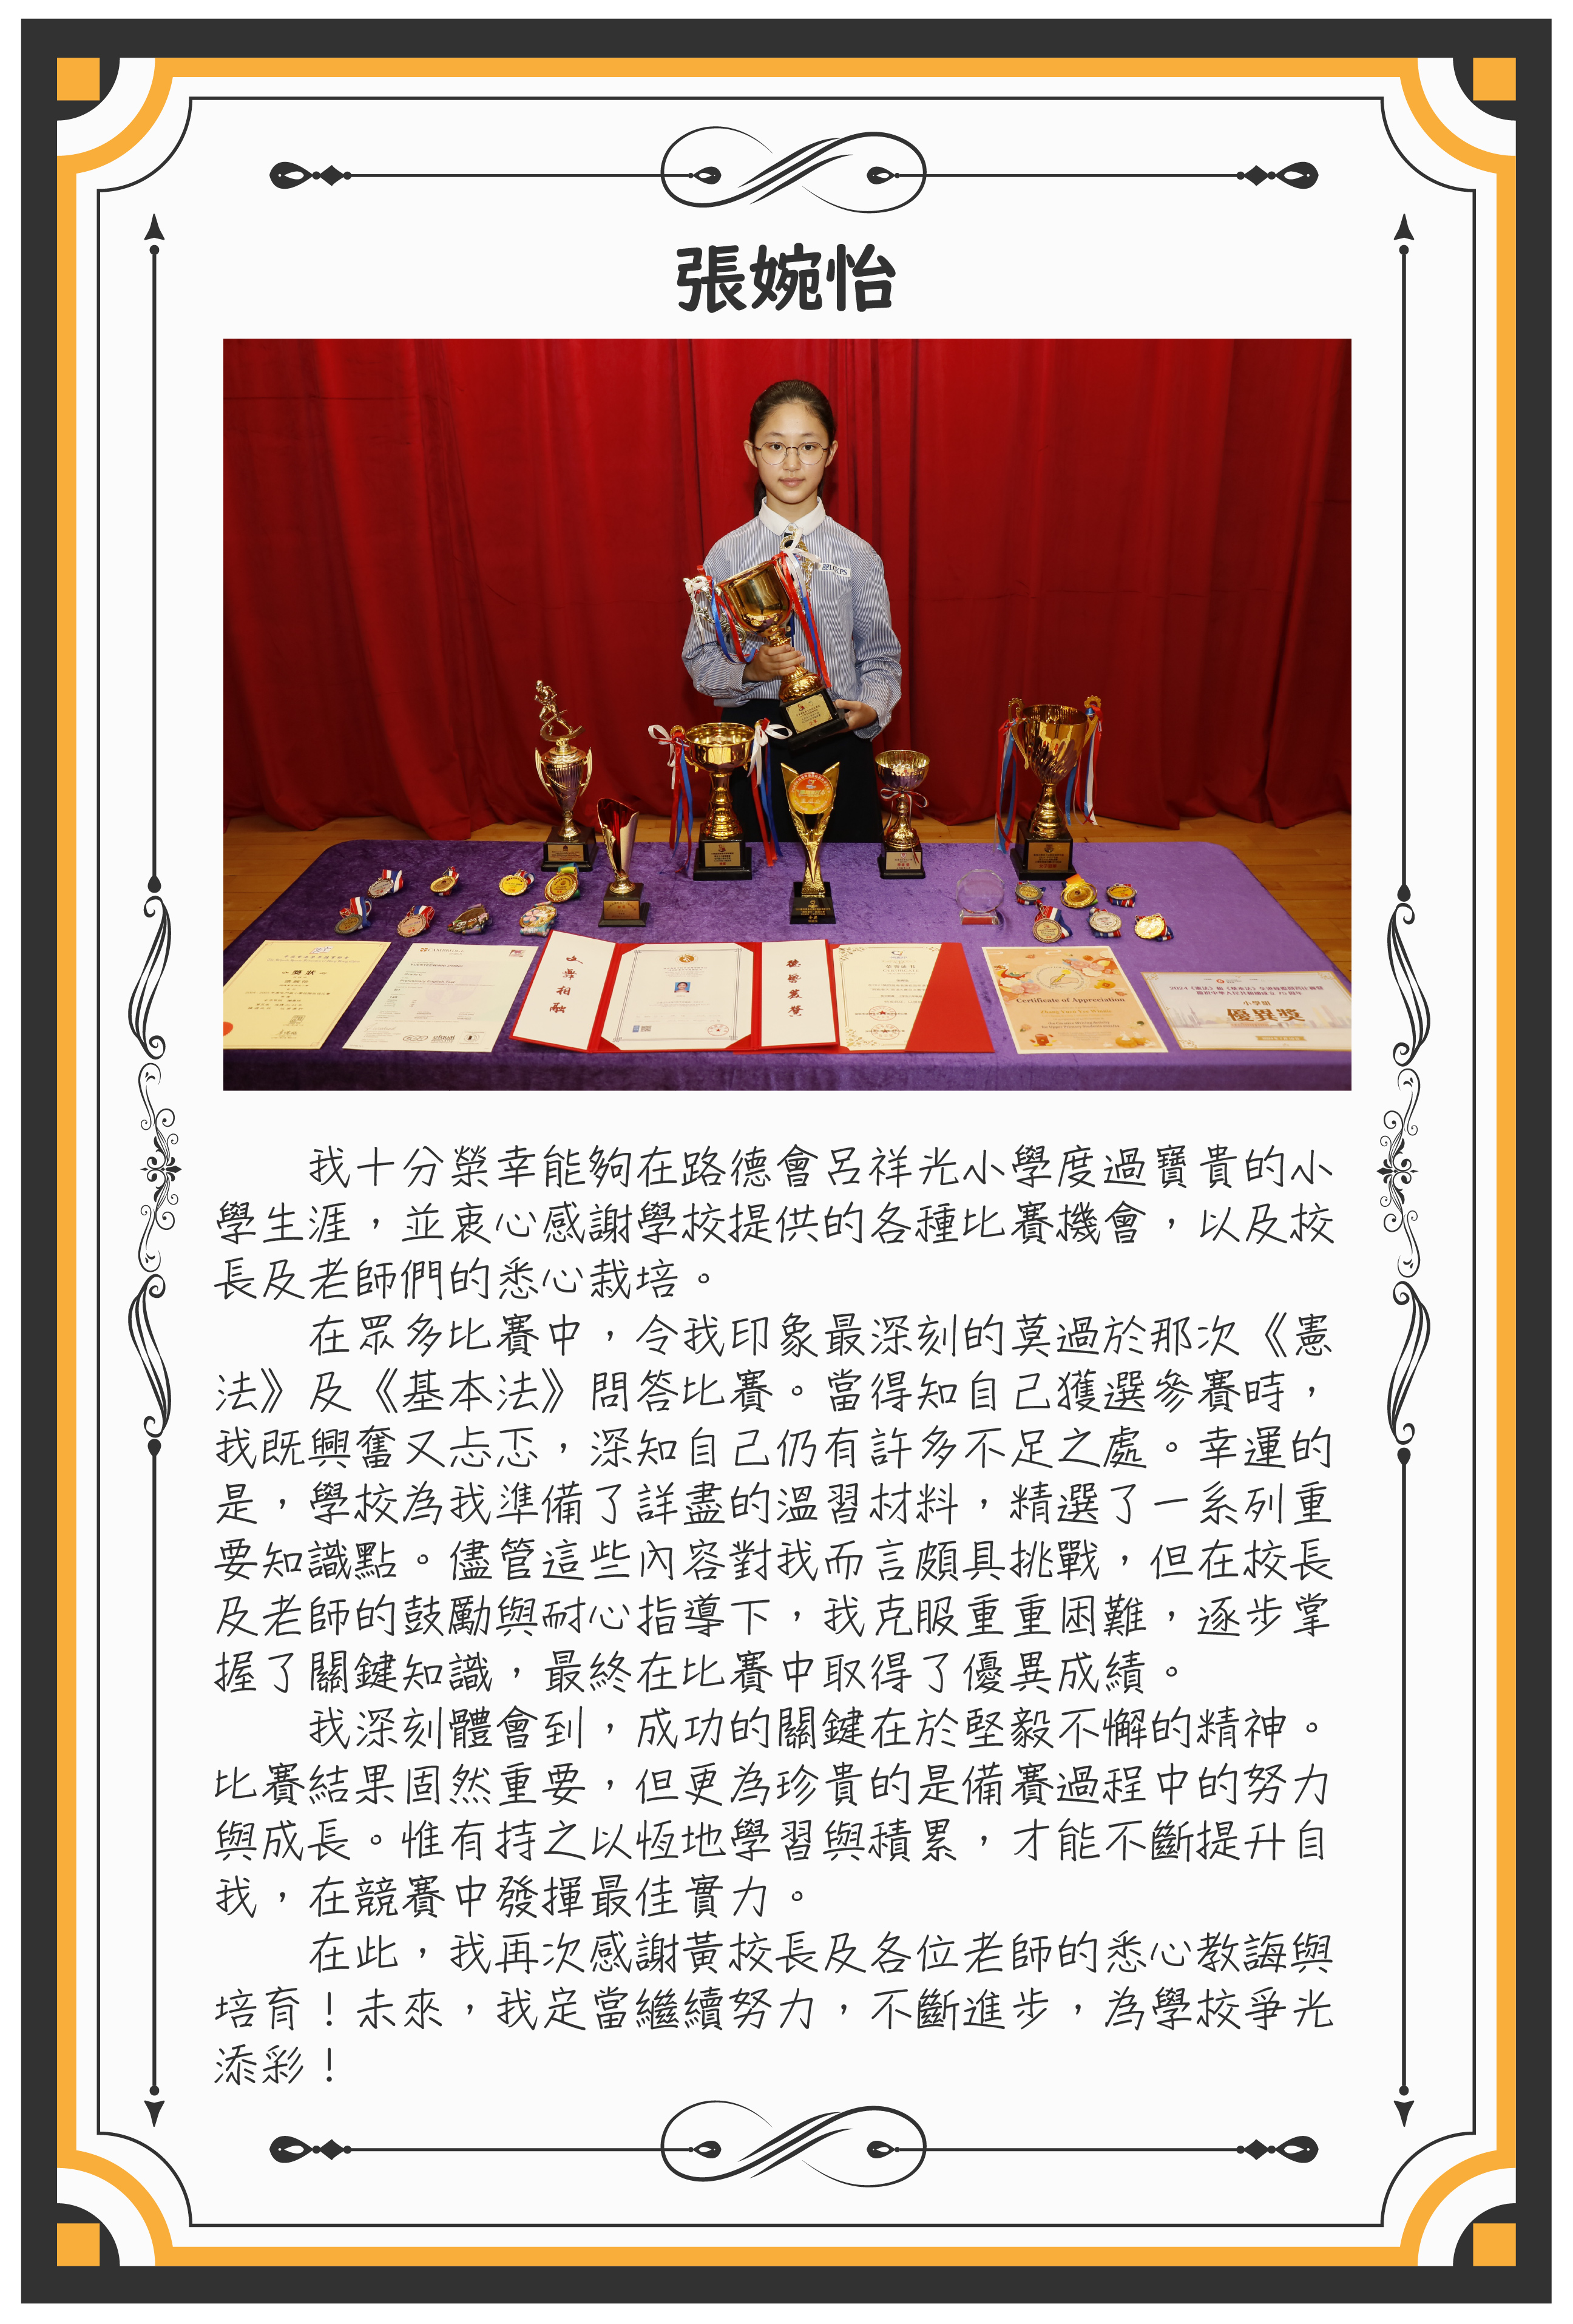 張婉怡
獎狀
文舞相融
德藝雙馨
榮譽證書
Certificate of Appreciation
小學組
優異獎
我十分榮幸能夠在路德會呂祥光小學度過寶貴的小
學生涯，並衷心感謝學校提供的各種比賽機會，以及校
長及老師們的悉心栽培。
在眾多比賽中，令我印象最深刻的莫過於那次《憲
法》及《基本法》問答比賽。當得知自己獲選參賽時，
我既興奮又忐忑，深知自己仍有許多不足之處。幸運的
是，學校為我準備了詳盡的溫習材料，精選了一系列重
要知識點。儘管這些內容對我而言頗具挑戰，但在校長
及老師的鼓勵與耐心指導下，我克服重重困難，逐步掌
握了關鍵知識，最終在比賽中取得了優異成績。
我深刻體會到，成功的關鍵在於堅毅不懈的精神。
比賽結果固然重要，但更為珍貴的是備賽過程中的努力
與成長。惟有持之以恆地學習與積累，才能不斷提升自
我，在競賽中發揮最佳實力。
在此，我再次感謝黃校長及各位老師的悉心教誨與
培育！未來，我定當繼續努力，不斷進步，為學校爭光
添彩！